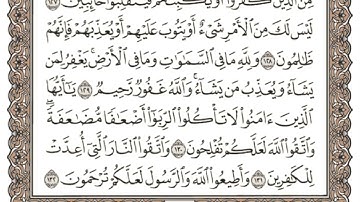 مِّنَ ٱلَّذِينَ كَفَرُوٓا۟ أَوْ يَكْبِتَهُمْ فَيَنقَلِبُوا۟ خَآئِبِينَ ١٢٧
لَيْسَ لَكَ مِنَ ٱلْأَمْرِ شَىْءٌ أَوْ يَتُوبَ عَلَيْهِمْ أَوْ يُعَذِّبَهُمْ فَإِنَّهُمْ
ظَـٰلِمُونَ ١٢٨ وَلِلَّهِ مَا فِى ٱلسَّمَـٰوَٰتِ وَمَا فِى ٱلْأَرْضِ ۚ يَغْفِرُ لِمَن
يَشَآءُ وَيُعَذِّبُ مَن يَشَآءُ ۚ وَٱللَّهُ غَفُورٌ رَّحِيمٌ ١٢٩ يَـٰٓأَيُّهَا
ٱلَّذِينَ ءَامَنُوا۟ لَا تَأْكُلُوا۟ ٱلرِّبَوٰٓا۟ أَضْعَـٰفًا مُّضَـٰعَفَةً ۖ
وَٱتَّقُوا۟ ٱللَّهَ لَعَلَّكُمْ تُفْلِحُونَ ١٣٠ وَٱتَّقُوا۟ ٱلنَّارَ ٱلَّتِىٓ أُعِدَّتْ
لِلْكَـٰفِرِينَ ١٣١ وَأَطِيعُوا۟ ٱللَّهَ وَٱلرَّسُولَ لَعَلَّكُمْ تُرْحَمُونَ ١٣٢